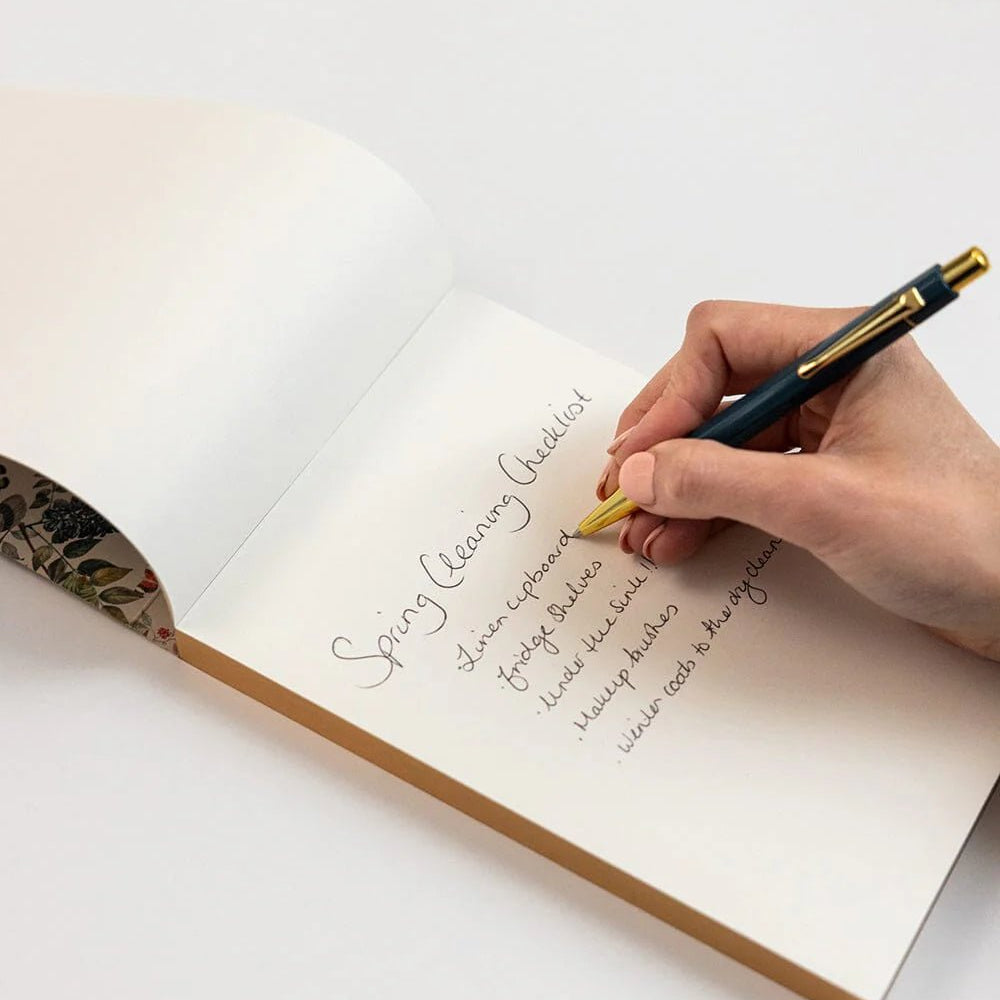 Spring Cleaning Checklist
· Linen cupboard
· Fridge Shelves
· Under the sink!!
· Makeup brushes
· Winter coats to the dry clean